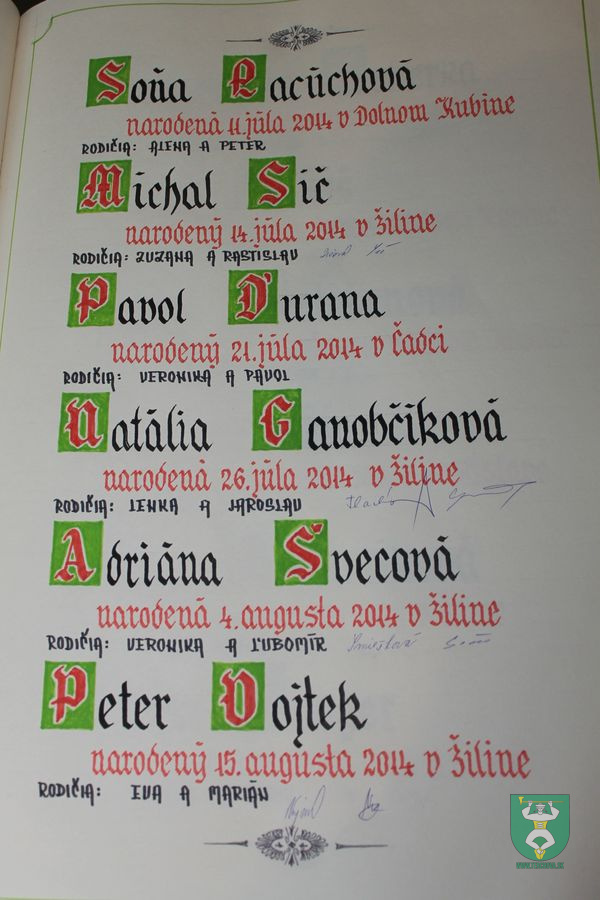 Soňa Lacúchová
narodená 11.júla 2014 v Dolnom Kubíne
RODIČIA: ALENA A PETER
Michal Sič
narodený 14.júla 2014 v Žiline
RODIČIA: ZUZANA A RASTISLAV
Pavol Ďurana
narodený 21.júla 2014 v Čadci
RODIČIA: VERONIKA A PAVOL
Natália Ganobčíková
narodená 26.júla 2014 v Žiline
RODIČIA: LENKA A JAROSLAV
Adriána Švecová
narodená 4.augusta 2014 v Žiline
RODIČIA: VERONIKA A ĽUBOMÍR
Peter Vojtek
narodený 15.augusta 2014 v Žiline
RODIČIA: EVA A MARIÁN